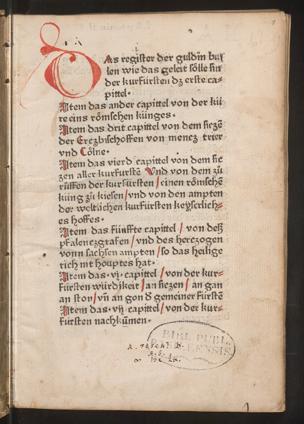 Das register der guldin bul
len wie das geleit sölle sin
der kurfürsten dz erste ca-
pittel.
Item das ander capittel von der kü
re eins römschen künges.
Item das drit capittel von dem sieze
der Erezbischoffen von menez trier
vnd Cölne.
Item das vierd capittel von dem sie
zen aller kurfurste Vnd von dem zů
rüffen der kurfürsten / einen römschē
küng zů kiesen / vnd von den ampten
der weltlichen kurfürsten keyserlich-
es hoffes.
Item das fünffte capittel / von deß
pfalenezgrafen / vnd des herezogen
vonn sachsen ampten / so das heilge
rich nit houptes hat.
Item das .vj. capittel / von der kur-
fürsten würdikeit / an siezen / an gan
an ston / vn̄ an gon d gemeiner fürstē
Item das .vij. capittel / von der kur-
fürsten nachkūmen.
BIBL. PUBL.